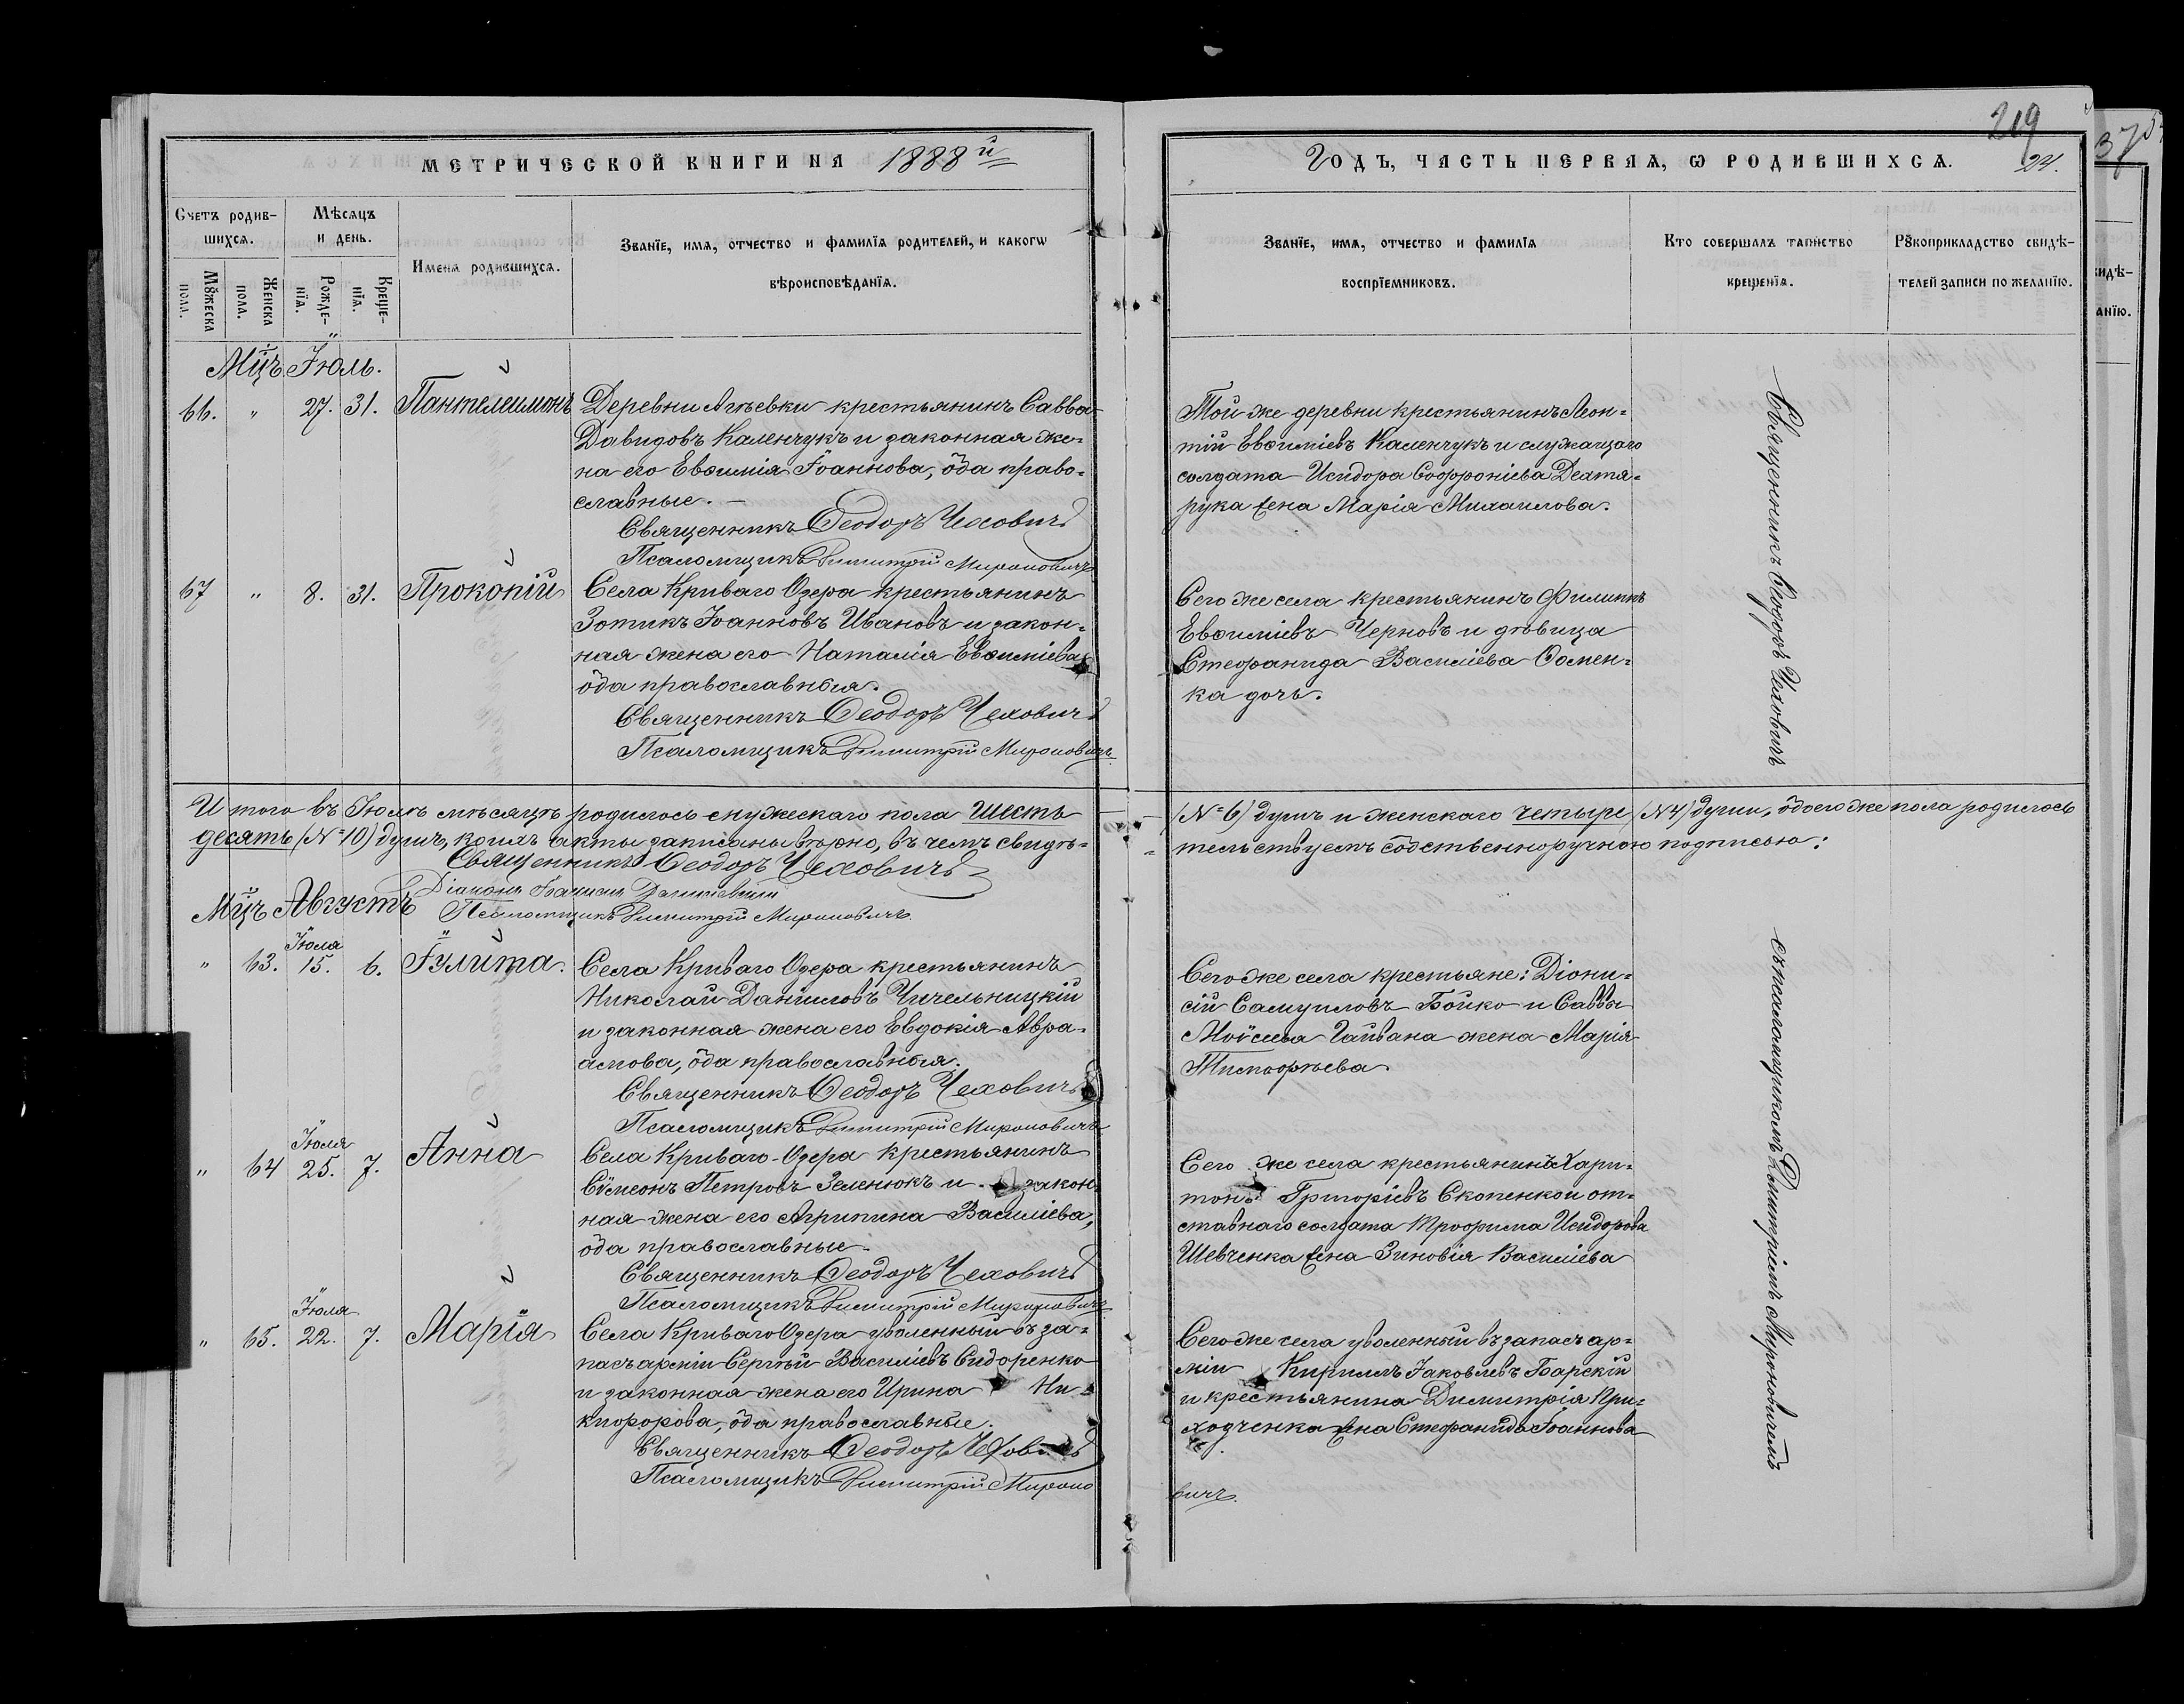 219
375
МЕТРИЧЕСКОЙ КНИГИ НА 1888й
ГОДЪ, ЧАСТЬ ПЕРВАЯ, Ѡ РОДИВШИХСѦ.
24.
Счетъ родив-
шихсѧ.
Мѣсѧцъ
и день.
Имена родившихсѧ.
Званїе, имѧ, отчество и фамилїѧ родителей, и какогѡ
вѣроисповѣданїѧ.
Мꙋжеска
пола.
Женска
пола.
Рожде-
нїѧ.
Креще-
нїѧ.
Званїе, имѧ, отчество и фамилїѧ
воспрїемниковъ.
Кто совершалъ таинство
крещенїѧ.
Рꙋкоприкладство свидѣ-
телей записи по желанїю.
Мцъ Іюль.
66. " 27. 31. Пантелеимонъ
Деревни Агѣевки крестьянинъ Савва
Давидовъ Каленчукъ и законная же-
на его Евѳимія Іоаннова, оба право-
славные.
Священникъ Ѳеодоръ Чеховичъ
Псаломщикъ Димитрій Мироновичъ
Той же деревни крестьянинъ Леон-
тій Евѳиміевъ Каленчукъ и служащаго
солдата Исидора Софроніева Дехтя-
рука жена Марія Михаилова.
67 " 8. 31. Прокопій
Села Криваго Озера крестьянинъ
Зотикъ Іоанновъ Ивановъ и закон-
ная жена его Наталія Евѳиміева
оба православныя.
Священникъ Ѳеодоръ Чеховичъ
Псаломщикъ Димитрій Мироновичъ
Сего же села крестьянинъ Филиппъ
Евѳиміевъ Черновъ и дѣвица
Стефанида Василіева
ка дочь.
Священникъ Ѳеодоръ Чеховичъ
Итого въ Іюлѣ мѣсяцѣ родилось мужескаго пола шесть (№ 6) душъ и женскаго четыре (№ 4) души, обоего же пола родилось
десять (№ 10) душъ, коихъ акты записаны вѣрно, въ чемъ свидѣ-
тельствуемъ собственноручною подписью:
Священникъ Ѳеодоръ Чеховичъ
Діаконъ
Псаломщикъ Димитрій Мироновичъ.
Мцъ Августъ
" 63. Іюля 15. 6. Іулита.
Села Криваго Озера крестьянинъ
Николай Даніиловъ Чичельницкій
и законная жена его Евдокія Авра-
амова, оба православныя.
Священникъ Ѳеодоръ Чеховичъ
Псаломщикъ Димитрій Мироновичъ
Сего же села крестьяне: Діони-
сій Самуиловъ Бойко и Саввы
Моѵсеева Гайвана жена Марія
Тимоѳѣева
" 64 Іюля 25. 7. Анна
Села Криваго Озера крестьянинъ
Сѵмеонъ Петровъ Зеленюкъ и закон-
ная жена его Агрипина Василіева,
оба православные.
Священникъ Ѳеодоръ Чеховичъ
Псаломщикъ Димитрій Мироновичъ
Сего же села крестьянинъ Хари-
тонъ Григоріевъ Скопенко и от-
ставнаго солдата Трофима Исидорова
Шевченка жена Зиновія Василіева
" 65. Іюля 22. 7. Марія
Села Криваго Озера уволенный въ за-
пасъ арміи Сергѣй Василіевъ Сидоренко
и законная жена его Ирина Ни-
кифорова, оба православные.
Священникъ Ѳеодоръ Чеховичъ
Псаломщикъ Димитрій Мироно
вичъ.
Сего же села уволенный въ запасъ ар-
міи Кириллъ Іаковлевъ Барскій
и крестьянина Димитрія При-
ходченка жена Стефанида Іоаннова
съ псаломщикомъ Димитріемъ Мироновичемъ
идѣ-
анїю.